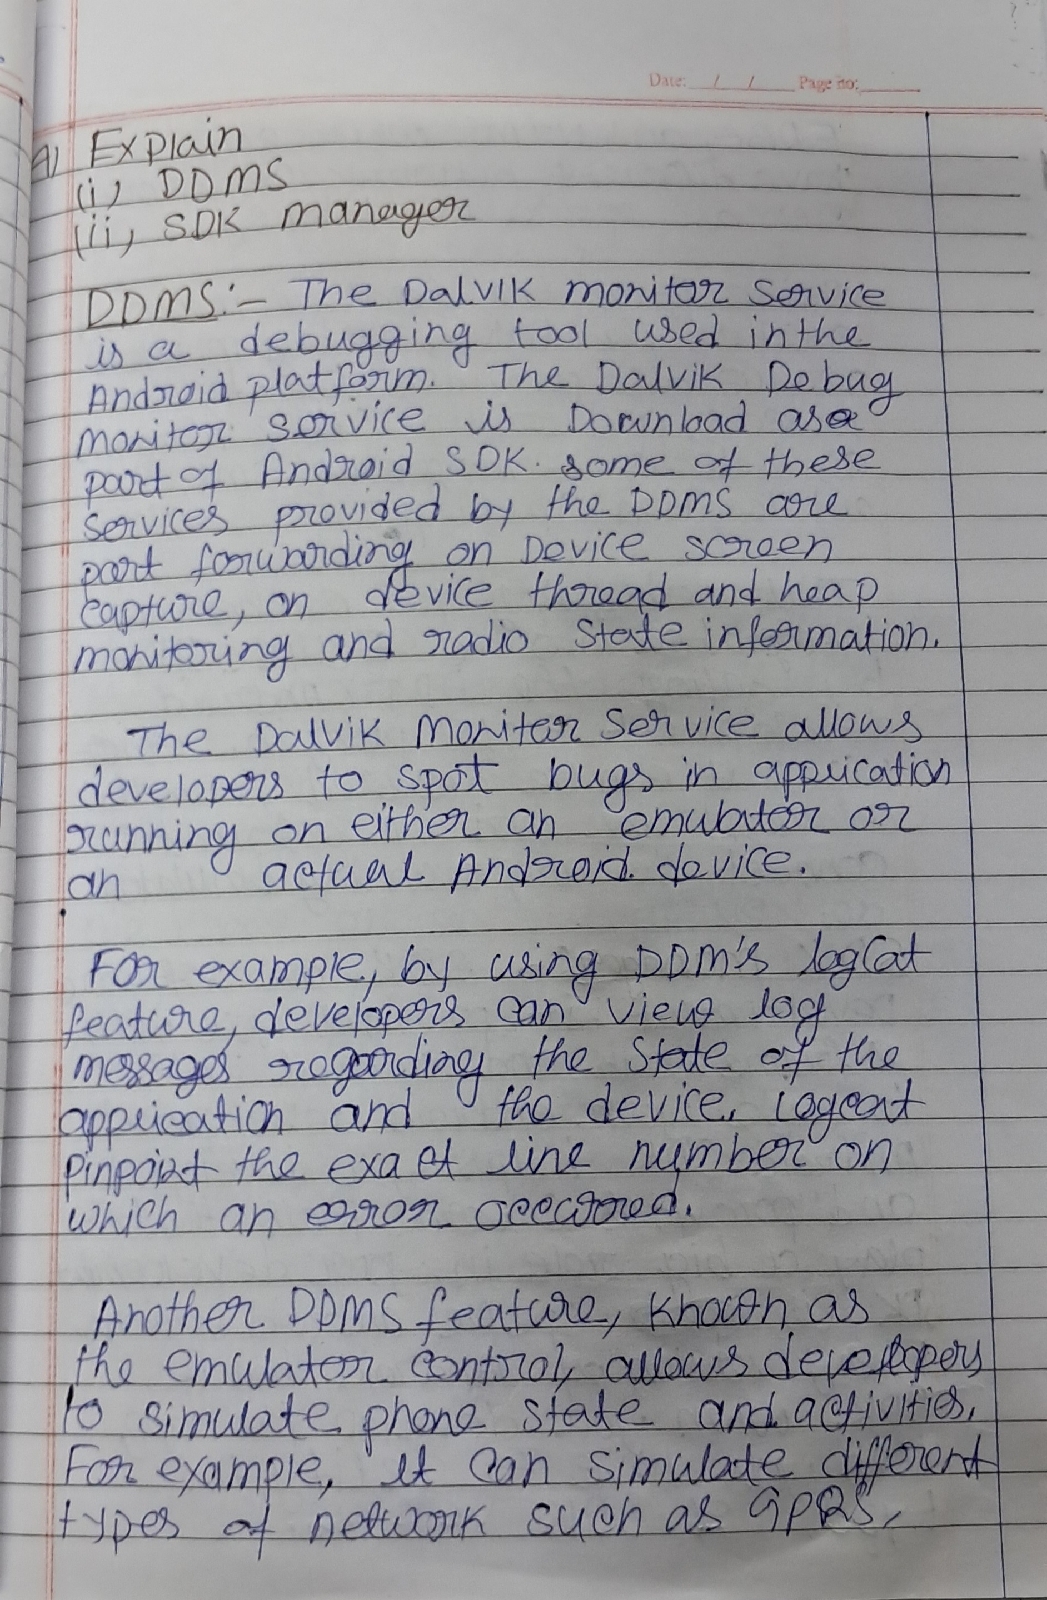 Date: / / Page no:
A) Explain
(i) DDMS
(ii) SDK manager
DDMS:- The Dalvik monitor Service
is a debugging tool used in the
Android platform. The Dalvik Debug
monitor service is Download as a
part of Android SDK. some of these
services provided by the DDMS are
port forwarding on Device screen
capture, on device thread and heap
monitoring and radio State information.
The Dalvik Monitor Service allows
developers to spot bugs in application
running on either an emulator or
an actual Android device.
For example, by using DDM's logCat
feature, developers can view log
messages regarding the State of the
application and the device. Logcat
pinpoint the exact line number on
which an error occurred.
Another DDMS feature, known as
the emulator control, allows developers
to simulate phone state and activities.
For example, it can simulate different
types of network such as GPRS,